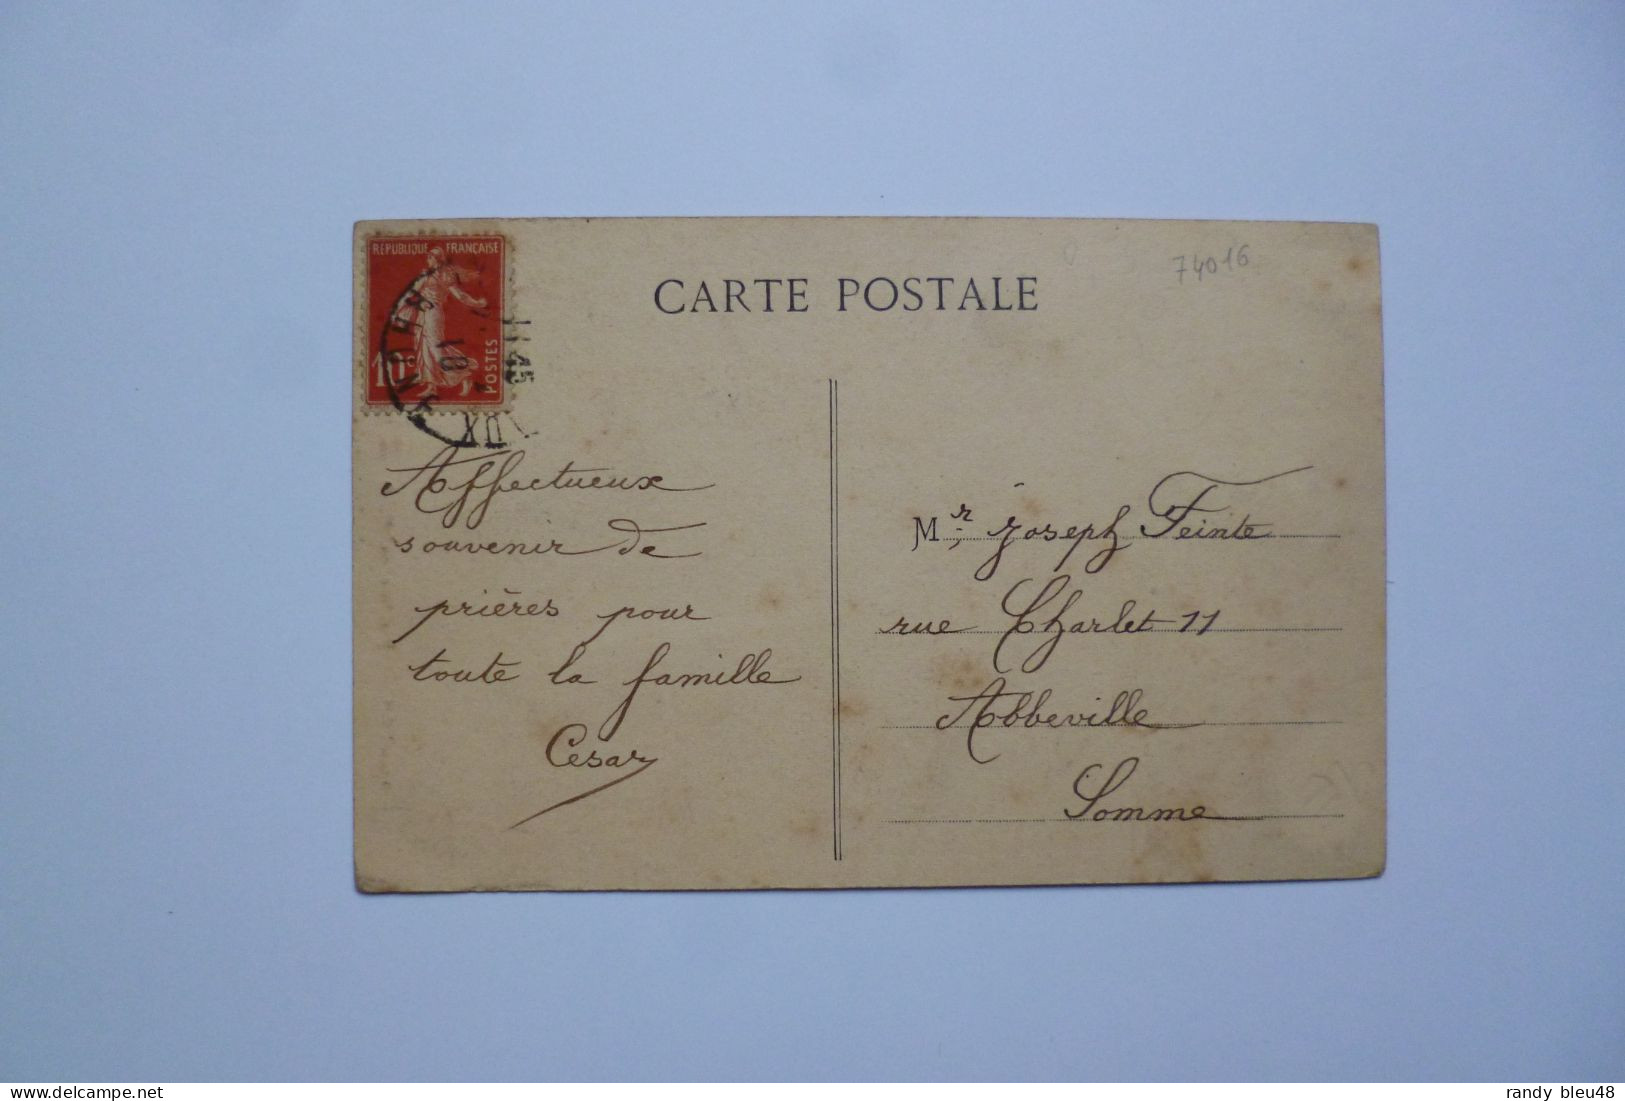 RÉPUBLIQUE FRANÇAISE
10c
POSTES
11 45
18
CARTE POSTALE
74016
Affectueux
souvenir de
prières pour
toute la famille
Cesar
Mr Joseph Feinte
rue Charlet 11
Abbeville
Somme
delcampe.net
randy bleu48